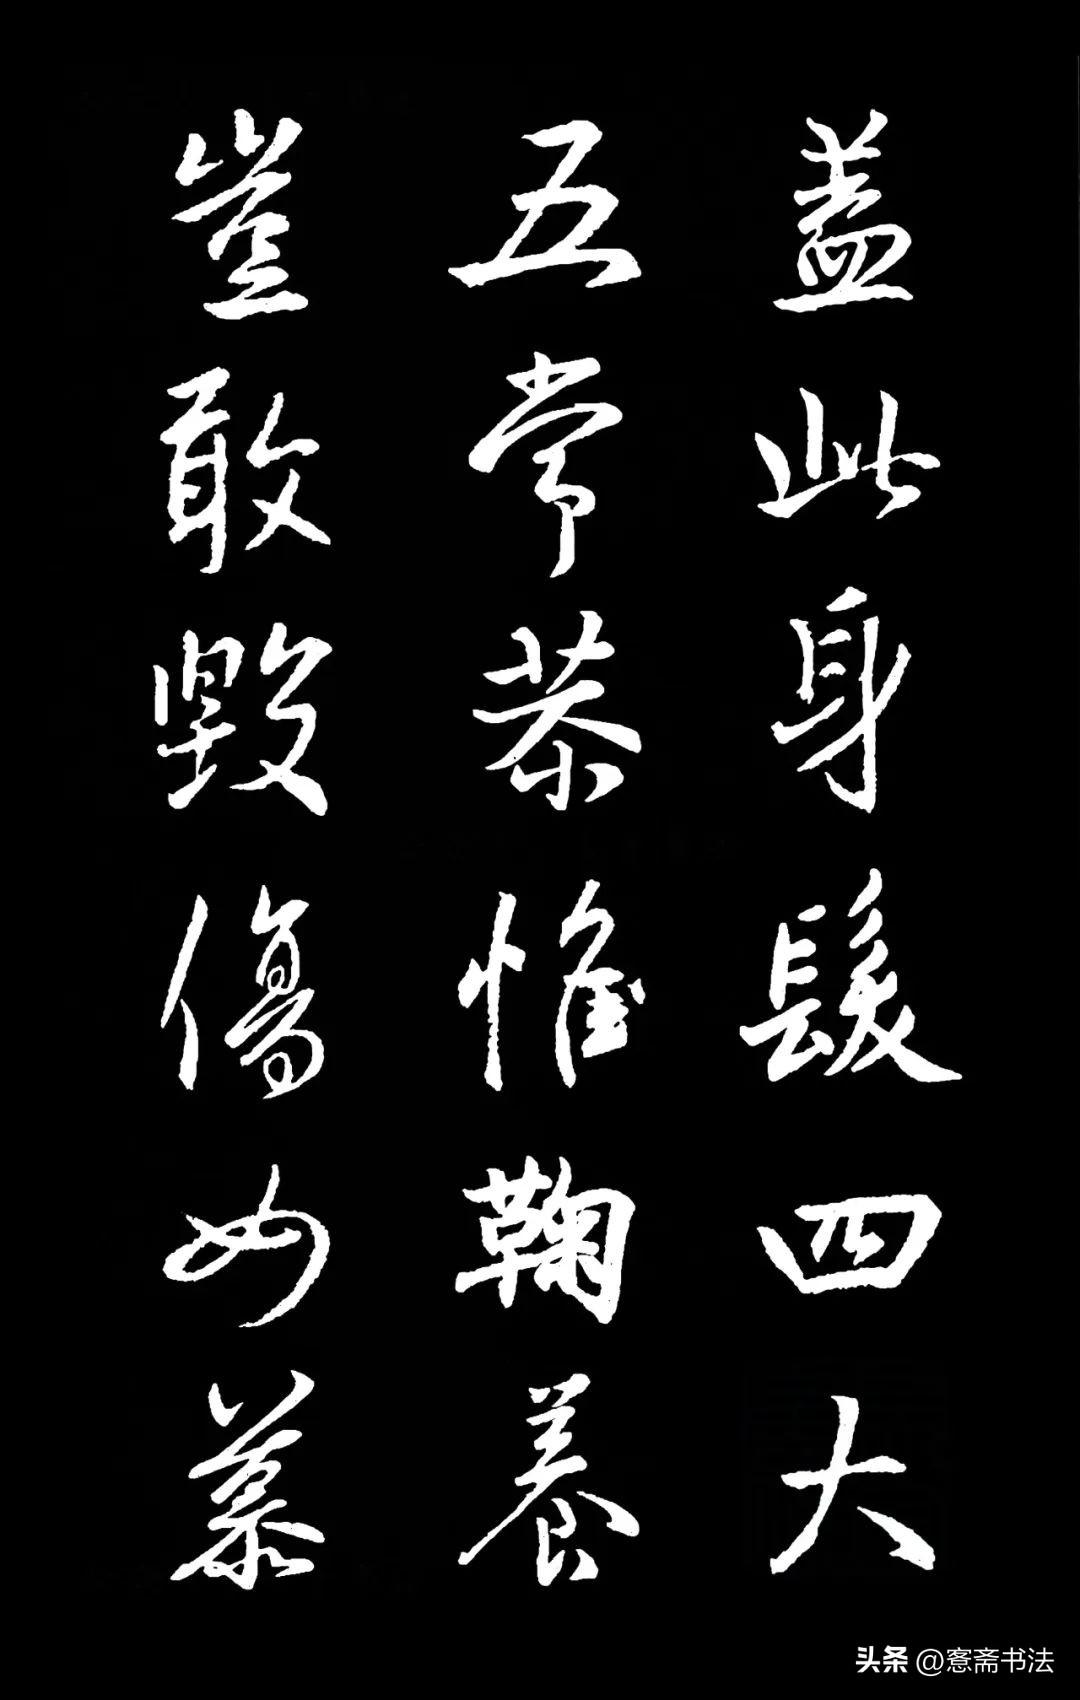 蓋此身髮四大
五常恭惟鞠養
豈敢毀傷女慕
头条@愙斋书法